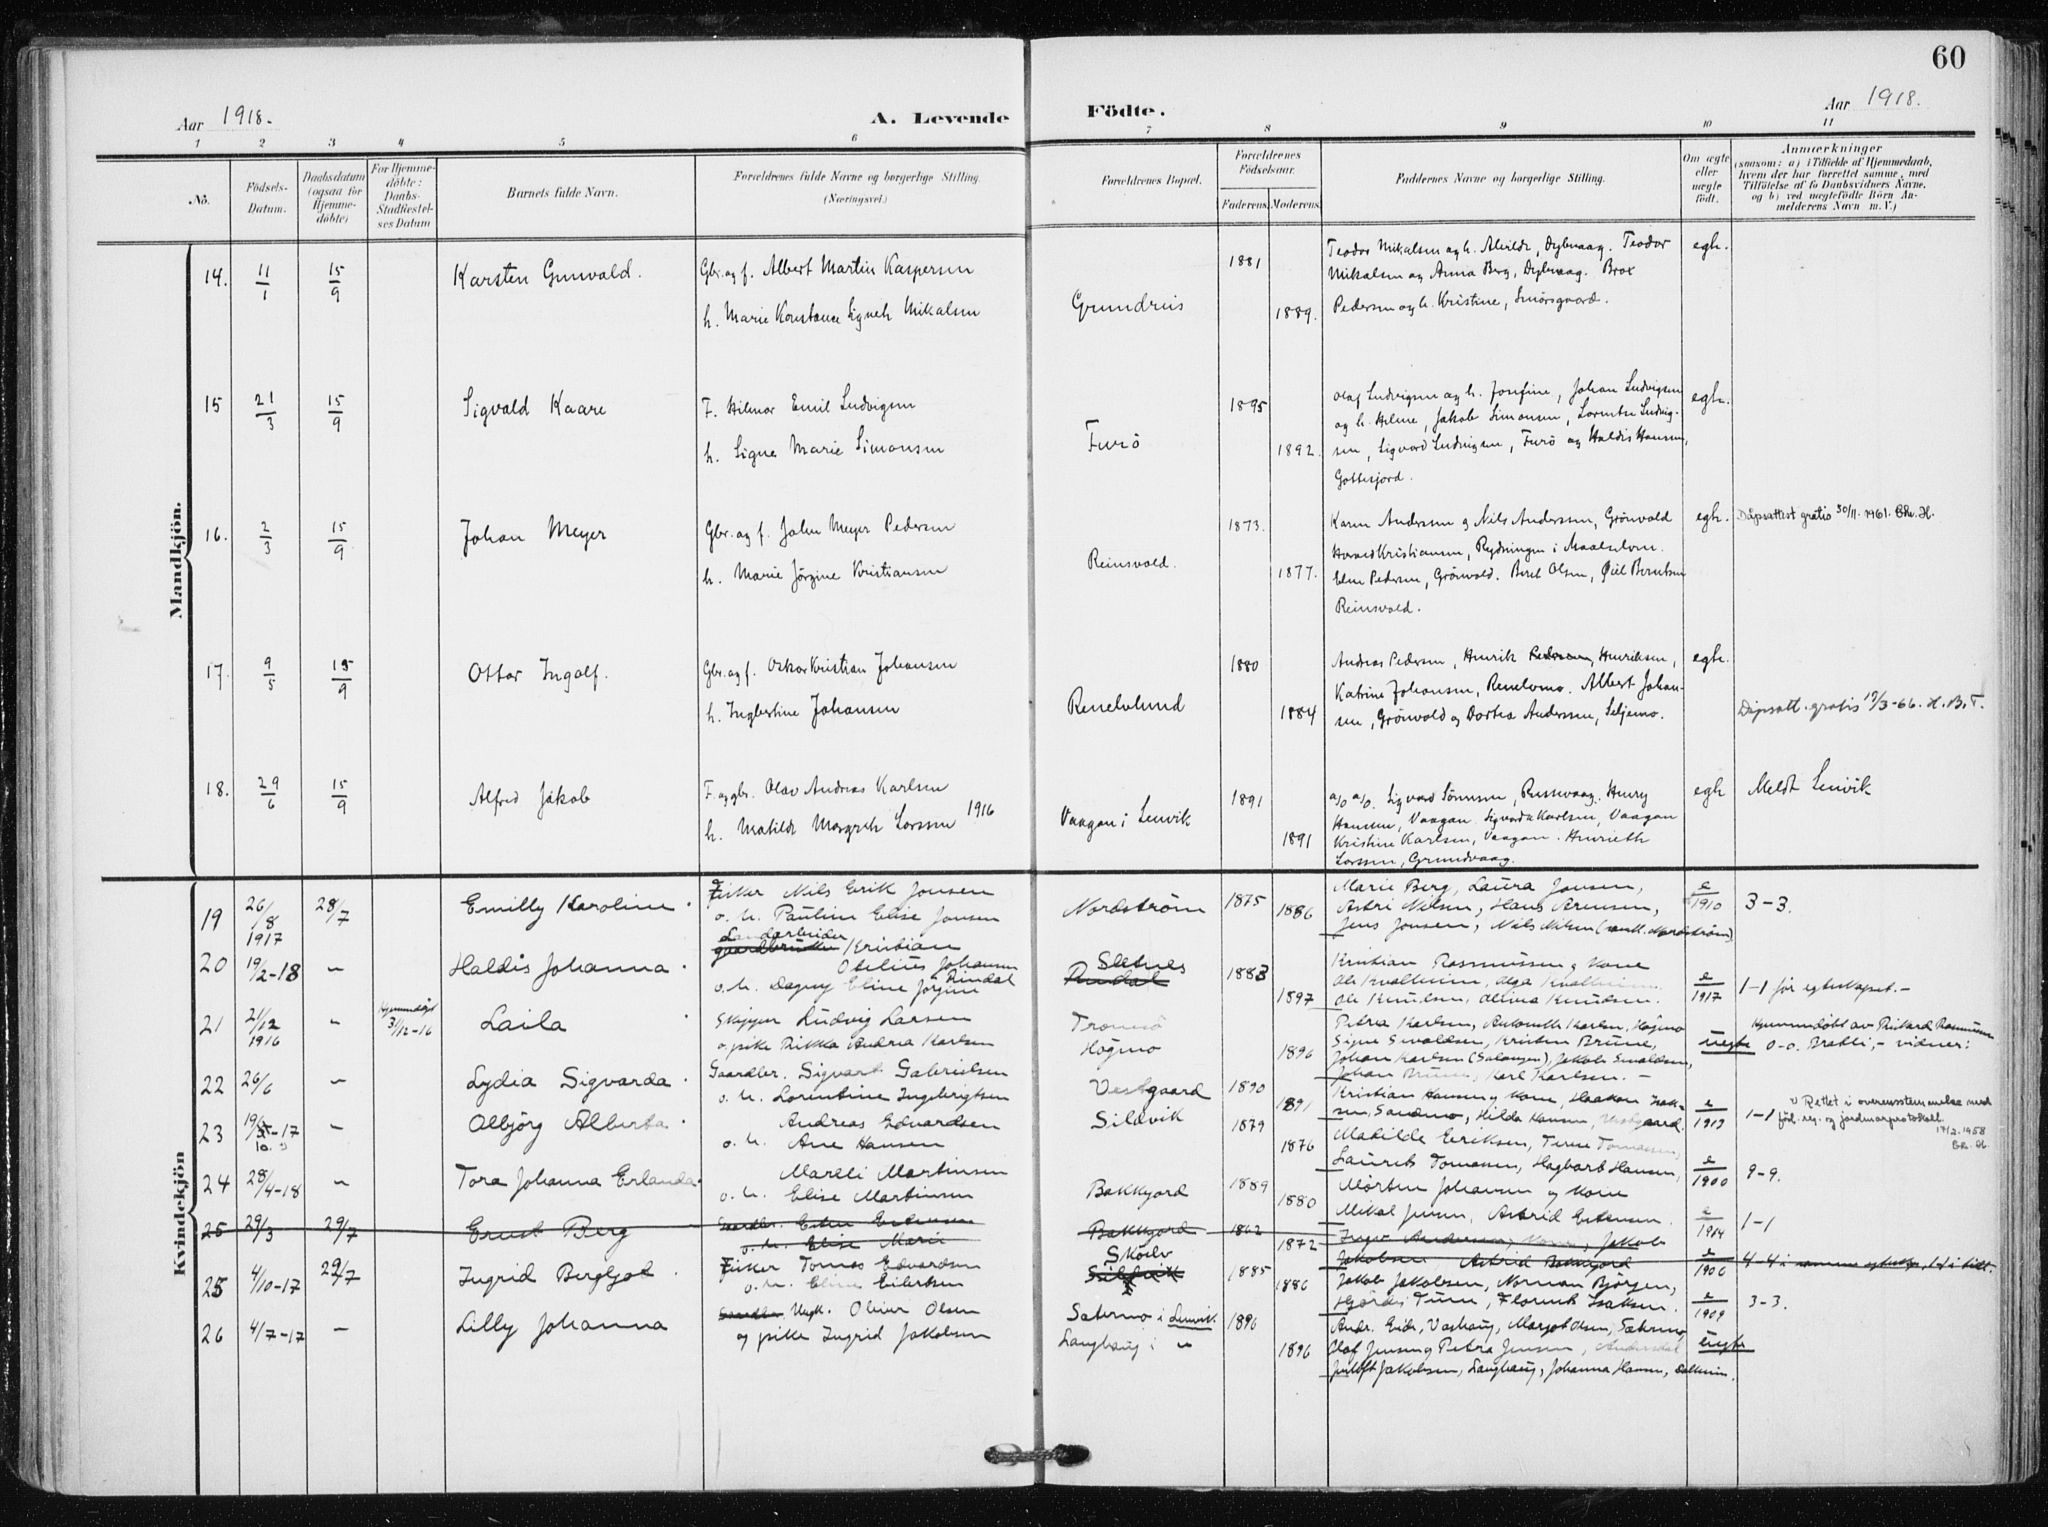 60
Aar 1918. A. Levende Födte. Aar 1918.
1 2 3 4 5 6 7 8 9 10 11
No. Födsels-Datum. Daabsdatum (ogsaa for Hjemme-döbte) For Hjemme-döbte: Daabs-Stadfæstel-ses Datum Barnets fulde Navn. Forældrenes fulde Navne og borgerlige Stilling (Næringsvei.) Forældrenes Bopæl. Forældrenes Födselsaar. Faderens. Moderens. Faddernes Navne og borgerlige Stilling. Om ægte eller uægte födt. Anmærkninger
(saasom: a) i Tilfælde af Hjemmedaab,
hvem der har forrettet samme, med
Tilföielse af to Daabsvidners Navne.
og b) ved uægtefödte Börn An-
melderens Navn m. V.)
Mandkjön.
14. 11/1 15/9 Karsten Gunvald. Gbr. og f. Albert Martin Kaspersen
h. Marie Konstance Signeh Mikalsen
Grundreis 1881 1889.
Teodor Mikalsen og h. Alvilde, Dybvaag. Teodor
Mikalsen og Anna Berg, Dybvaag. Brox
Pedersen og h. Kristine, Smörsgaard.
egh.
15 21/3 15/9 Sigvald Kaare F. Hilmar Emil Ludvigsen
h. Signe Marie Simonsen
Furö 1895 1892.
Olaf Ludvigsen og h. Josefine, Johan Ludvigsen
og h. Helene, Jakob Simonsen, Lorentse Ludvig-
sen, Sigvard Ludvigsen, Furö og Haldis Hansen,
Gottesjord.
egh.
16. 2/3 15/9 Johan Meyer Gbr. og f. Johan Meyer Pedersen
h. Marie Jörgine Kristiansen
Reinsvold. 1873. 1877.
Karen Andersen og Nils Anderssen, Grönvold
Kristiansen, Rydningen i Maalselven.
Pedersen, Grönvold. Berit Olsen, Berntsen
Reinsvold.
egh. Dåpsattest gratis 30/11.1961. Chr. H.
17. 9/5 15/9 Ottar Ingolf. Gbr. og f. Oskar Kristian Johansen
h. Ingbertine Johansen
Renelvlund 1880 1884
Andreas Pedersen, Henrik Pedersen, Henriksen,
Katrine Johansen, Renelvmo. Albert Johan-
sen, Grönvold og Dortea Anderssen, Seljemo.
egh. Dåpsatt. gratis 17/3-66. H. B. T.
18. 29/6 15/9 Alfred Jakob F. og gbr. Olav Andreas Karlsen
h. Matilde Margreth Larssen 1916
Vaagan i Lenvik 1891 1891
Sigvard Tönnesen, Russevaag. Henry
Hansen, Vaagan. Sigvarda Karlsen, Vaagan
Kristine Karlsen, Vaagan. Henrieth
Larssen, Grundvaag.
egh Meldt Lenvik
Kvindekjön
19 26/8 1917 28/7 Emilly Karoline. Fisker Nils Erik Jonsen
o. h. Pauline Elise Jonsen
Nordström 1875 1886
Marie Berg, Laura Jonsen,
Astri Nilsen, Hans Arensen,
Jens Jonsen, Nils Nilsen
e/1910 3-3.
20 19/2-18 - Haldis Johanna. Landarbeider
gaardbruker Kristian
Otelius Johansen Rindal
o. h. Dagny Eline Jörgine
Sletnes
Rindal 1883 1897
Kristian Rasmussen og Kone
Ole Kvalheim, Olga Kvalheim
Ole Knudsen, Olina Knudsen.
e/1917 1-1 för egteskapet.-
21 21/12 1916 - Hjemmedöpt 31/12-16 Laila Skipper Ludvig Larsen
o. pike Rikka Andrea Karlsen
Tromsö
Högmo 1896
Petra Karlsen, Karlsen, Högmo
Signe Sivaldsen, Kristen Brune,
Johan Karlsen (Salangen), Jakob Sivaldsen,
Johan Brune, Karl Karlsen.-
uegte Hjemmedöbt av Rikard Rasmussen
0-0. Bratli,- vidner:
22 26/6 - Lydia Sigvarda. Gaardbr. Sigvart Gabrielsen
o. h. Lorentine Ingebrigtsen
Vestgaard 1890 1891
Kristian Hansen og Kone, Haakon Isak-
sen, Sandmo, Hilda Hansen, Vestgaard.
e/1913 1-1
23 19/5-17 10. - Olbjörg Alberta. Andreas Edvardsen
o. h. Ane Hansen
Sildvik 1879 1876
Matilde Eriksen, Tomassen,
Laurits Tomassen, Hagbart Hansen,
e/1900 9-9.
v Rettet i overensstemmelse med
föd. reg. og jordmorprotokoll.
17/2.1958
Chr. H
24 28/4-18 - Tora Johanna Erlanda. Mareli Martinsen
o. h. Elise Martinsen
Bakkjord 1889 1880
Morten Johansen og Kone
Mikal Jensen, Astrid Estensen.
e/1914 1-1
25 29/3 29/7 Ernst Berg Gaardbr. Esten Estensen
o. h. Elise Marie
Bakkjord 1862 1872
Ingv. Andersen, Kone, Jakob
Jakobsen Astrid Bakkejord
e/1906 4-4 i samme egteskap, 14 i tidl.
25 4/10-17 29/7 Ingrid Bergljot. Fisker Tomas Edvardsen
o. h. Eline Eilertsen
Skoelv
Sildvik 1885 1886
Jakob Jakobsen, Norman Björgen,
Hjördis Tune, Florents Isaksen.
e/1909 3-3.
26 4/7-17 - Lilly Johanna Gaardbr. Ungk. Oliver Olsen
og pike Ingrid Jakobsen
Sætermo i Lenvik.
Langhaug i " 1896 1896
Andr. Eidr, Vashaug, Margot Olsen, Sætermo,
Olaf Jensen og Petra Jensen, Andersdal
Jakobsen, Langhaug, Johanna Hansen,
uegte